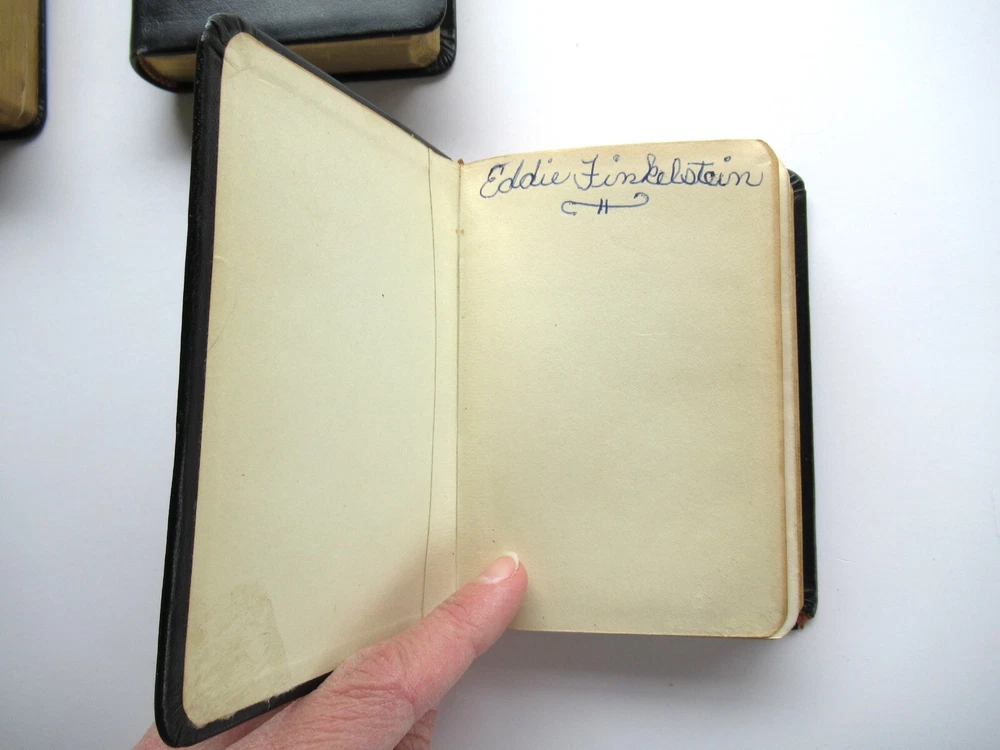 Eddie Finkelstein